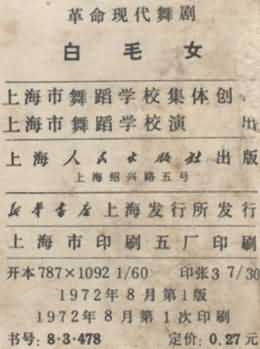 革命现代舞剧
白毛女
上海市舞蹈学校集体创
上海市舞蹈学校演 出
上海人民出版社出版
上海绍兴路五号
新华书店上海发行所发行
上海市印刷五厂印刷
开本787×1092 1/60 印张3 7/30
1972年8月第1版
1972年8月第1次印刷
书号: 8·3·478 定价: 0.27元